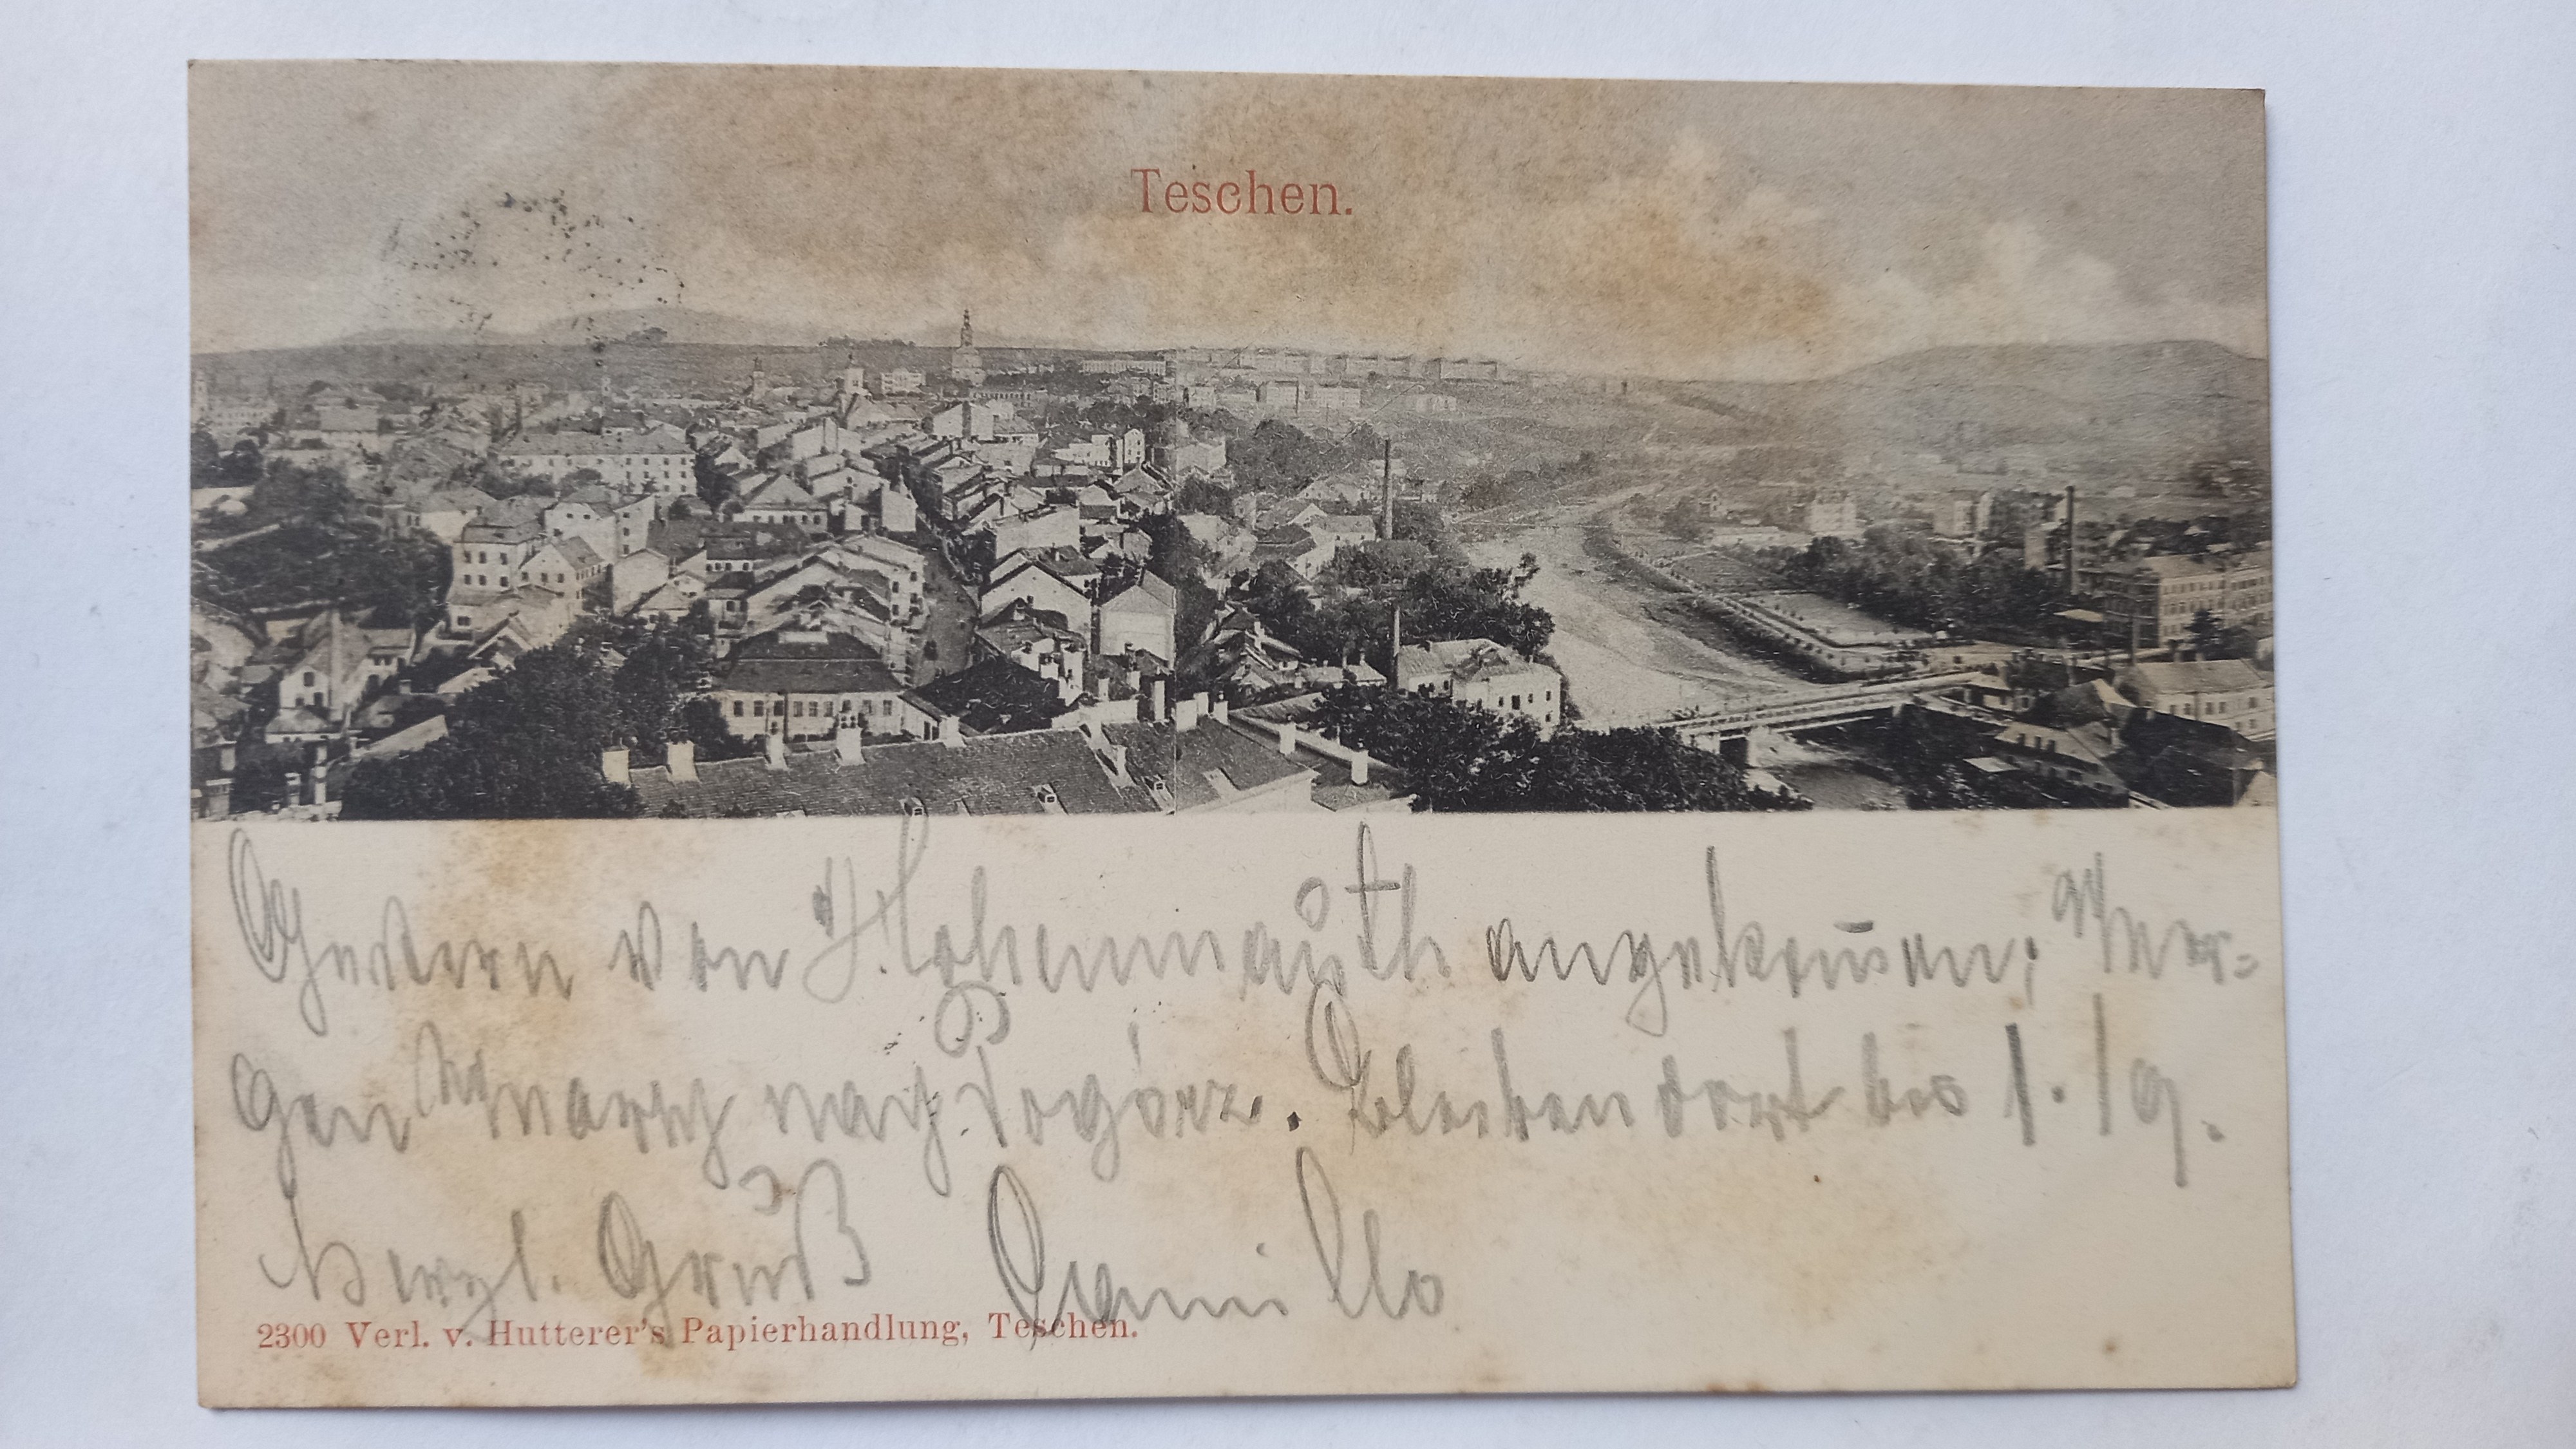 Teschen.
Gestern von Hohenmauth angekom̅en; Mor=
gen Marsch nach Pogórz. Bleiben dort bis 1./9.
Herzl. Gruß Camillo
2300 Verl. v. Hutterer's Papierhandlung, Teschen.